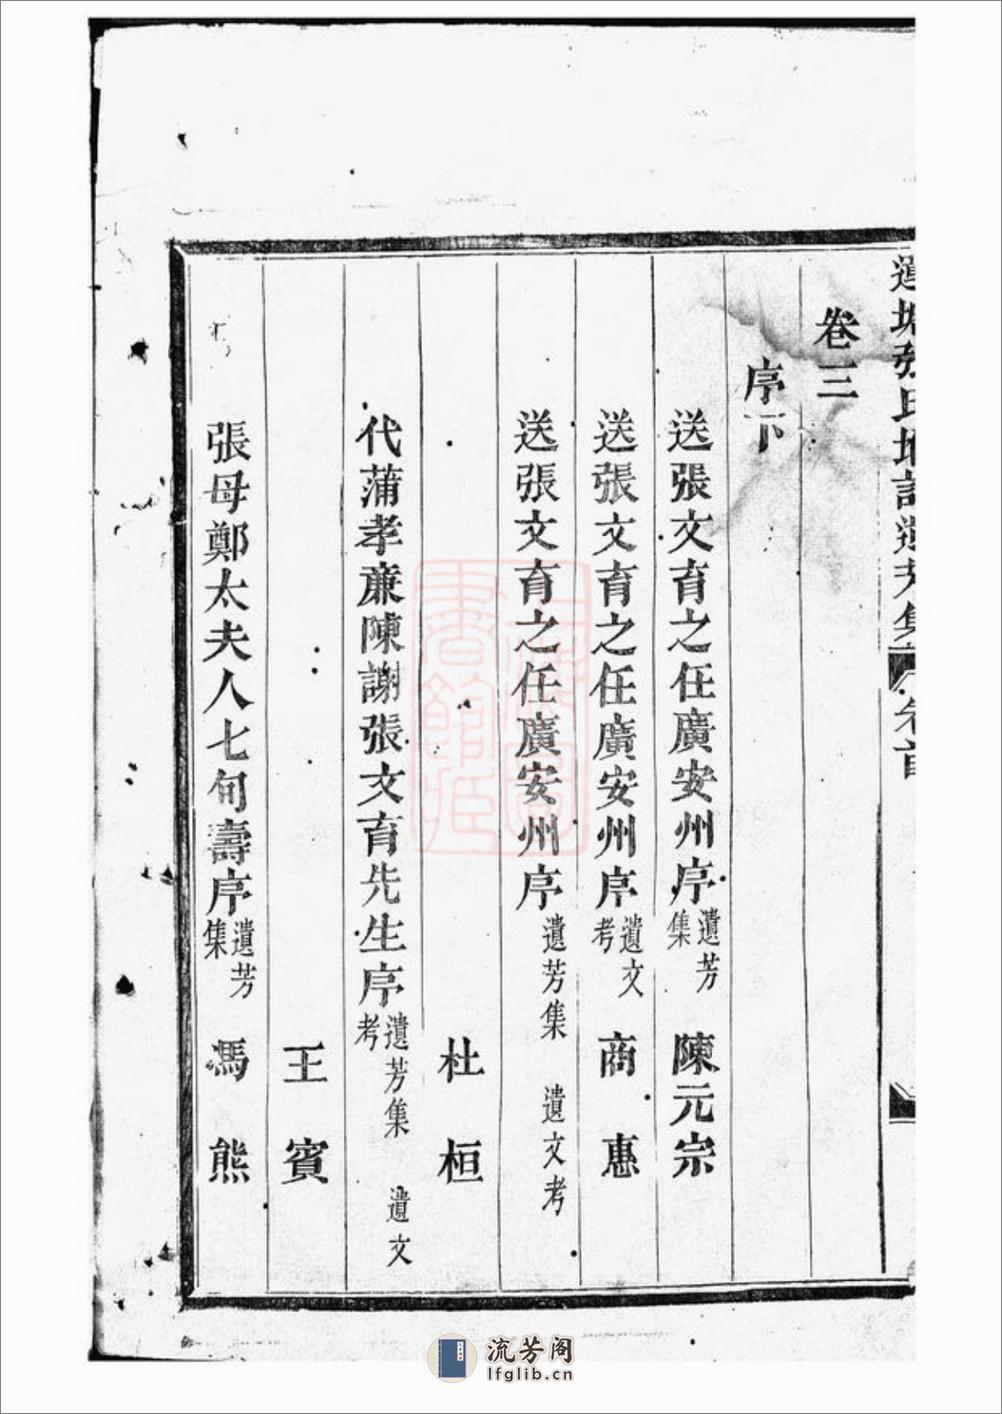 張氏
遺芳集
卷首
卷三
序下
送張文育之任廣安州序 遺芳集 陳元宗
送張文育之任廣安州序 遺文考 商惠
送張文育之任廣安州序 遺芳集 遺文考
杜桓
代蒲孝廉陳謝張文育先生序 遺芳集 遺文考
王賓
張母鄭太夫人七旬壽序 遺芳集 馮熊
流芳阁
lfglib.cn